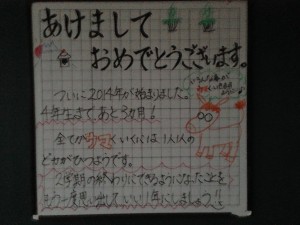 あけまして
おめでとうございます。
ついに2014年が始まりました。
4年生まで、あと3カ月!
全てが
いくには1人1人の
どせがひつようです。
2学期の終わりにできるようになったことを
もう一度思い出して、いい1年にしましょう!!